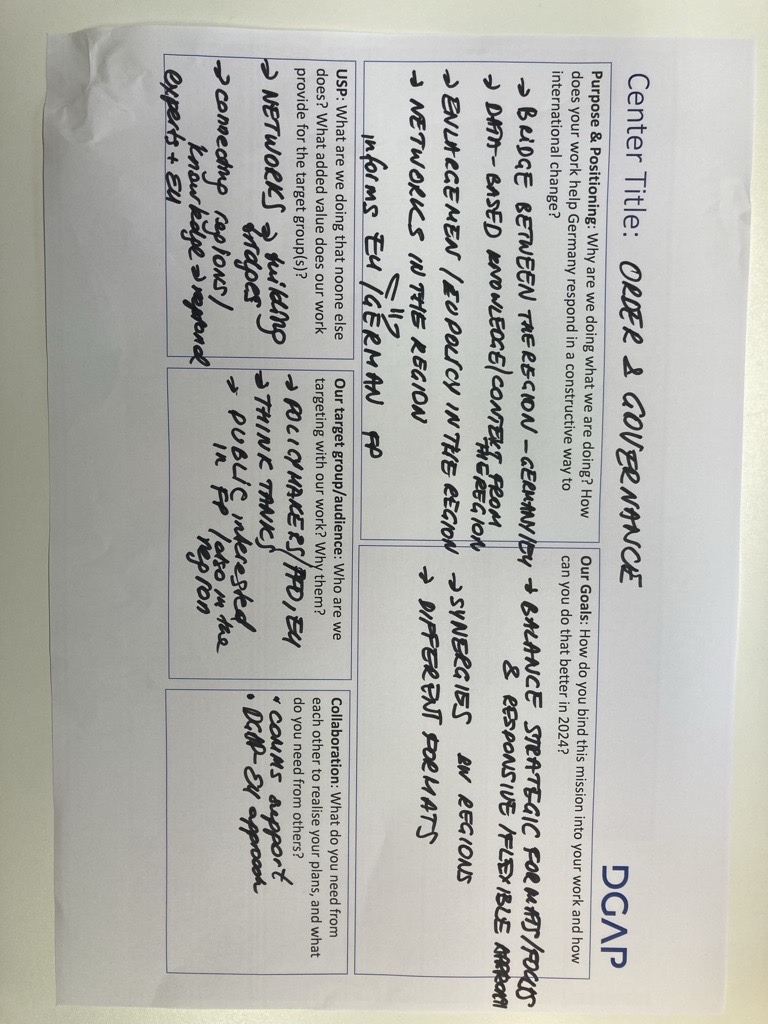 Center Title: ORDER & GOVERNANCE
DGAP
Purpose & Positioning: Why are we doing what we are doing? How
does your work help Germany respond in a constructive way to
international change?
→ BRIDGE BETWEEN THE REGION – GERMANY/EU
→ DATA-BASED KNOWLEDGE/CONTENT FROM
THE REGION
→ ENLARGEMEN / EU POLICY IN THE REGION
→ NETWORKS IN THE REGION
informs EU / GERMAN FP
Our Goals: How do you bind this mission into your work and how
can you do that better in 2024?
→ BALANCE STRATEGIC FORMATS/FOCUS
& RESPONSIVE/FLEXIBLE APPROACH
→ SYNERGIES BW REGIONS
→ DIFFERENT FORMATS
USP: What are we doing that noone else
does? What added value does our work
provide for the target group(s)?
→ NETWORKS → building
bridges
→ connecting regions/
knowledge → regional
experts + EU
Our target group/audience: Who are we
targeting with our work? Why them?
→ POLICYMAKERS/FFO, EU
→ THINK TANKS
→ PUBLIC interested
in FP /also in the
region
Collaboration: What do you need from
each other to realise your plans, and what
do you need from others?
• COMMS support
• DGAP-EU approach